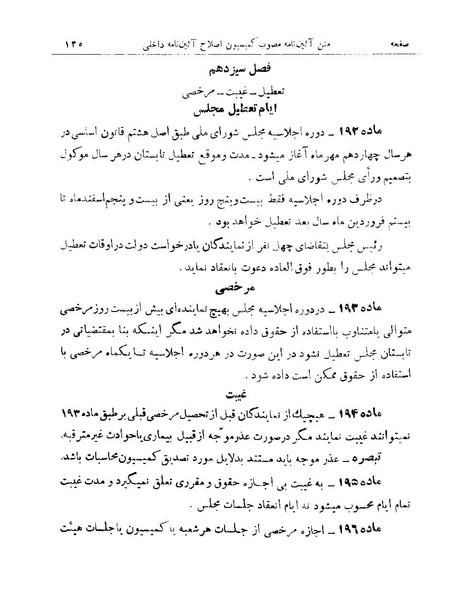 صفحه متن آئین‌نامه مصوب کمیسیون اصلاح آئین‌نامه داخلی ۱۳۵
فصل سیزدهم
تعطیل ـ غیبت ـ مرخصی
ایام تعطیل مجلس
ماده ۱۹۲ ـ دوره اجلاسیه مجلس شورای ملی طبق اصل هشتم قانون اساسی در
هرسال چهاردهم مهرماه آغاز میشود ـ مدت وموقع تعطیل تابستان درهر سال موکول
بتصمیم ورأی مجلس شورای ملی است .
درظرف دوره اجلاسیه فقط بیست‌وپنج روز یعنی از بیست‌و پنجم‌اسفندماه تا
بیستم فروردین ماه سال بعد تعطیل خواهد بود .
رئیس مجلس بتقاضای چهل نفر از نمایندگان یادرخواست دولت دراوقات تعطیل
میتواند مجلس را بطور فوق العاده دعوت بانعقاد نماید .
مرخصی
ماده ۱۹۳ ـ دردوره اجلاسیه مجلس بهیچ نماینده‌ای بیش از بیست روز مرخصی
متوالی یامتناوب بااستفاده از حقوق داده نخواهد شد مگر اینکه بنا بمقتضیاتی در
تابستان مجلس تعطیل نشود در این صورت در هردوره اجلاسیه تا یکماه مرخصی با
استفاده از حقوق ممکن است داده شود .
غیبت
ماده ۱۹۴ ـ هیچیک از نمایندگان قبل از تحصیل مرخصی قبلی برطبق ماده ۱۹۳
نمیتوانند غیبت نمایند مگر درصورت عذرموجه ازقبیل بیماری یاحوادث غیرمترقبه.
تبصره ـ عذر موجه باید مستند بدلایل مورد تصدیق کمیسیون محاسبات باشد.
ماده ۱۹۵ ـ به غیبت بی اجازه حقوق و مقرری تعلق نمیگیرد و مدت غیبت
تمام ایام محسوب میشود نه ایام انعقاد جلسات مجلس .
ماده ۱۹۶ ـ اجازه مرخصی از جلسات هرشعبه یا کمیسیون یاجلسات هیئت